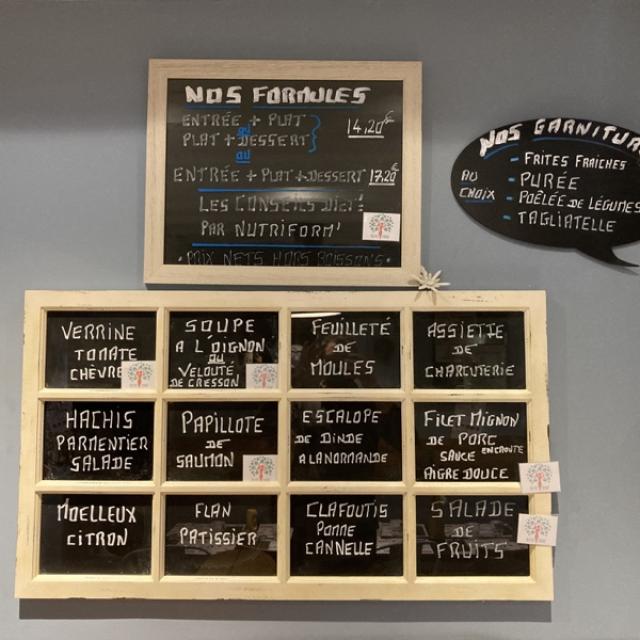 NOS FORMULES
ENTRÉE + PLAT
ou
PLAT + DESSERT
14,20€
ou
ENTRÉE + PLAT + DESSERT 17,20€
LES CONSEILS DIET'
PAR NUTRIFORM'
* PRIX NETS HORS BOISSONS *
NOS GARNITU
AU
CHOIX
- FRITES FRAÎCHES
- PURÉE
- POÊLÉE DE LÉGUMES
- TAGLIATELLE
VERRINE
TOMATE
CHÈVRE
SOUPE
A L'OIGNON
OU
VELOUTÉ
DE CRESSON
FEUILLETÉ
DE
MOULES
ASSIETTE
DE
CHARCUTERIE
HACHIS
PARMENTIER
SALADE
PAPILLOTE
DE
SAUMON
ESCALOPE
DE DINDE
A LA NORMANDE
FILET MIGNON
DE PORC
EN CROUTE
SAUCE
AIGRE DOUCE
MOELLEUX
CITRON
FLAN
PATISSIER
CLAFOUTIS
POMME
CANNELLE
SALADE
DE
FRUITS